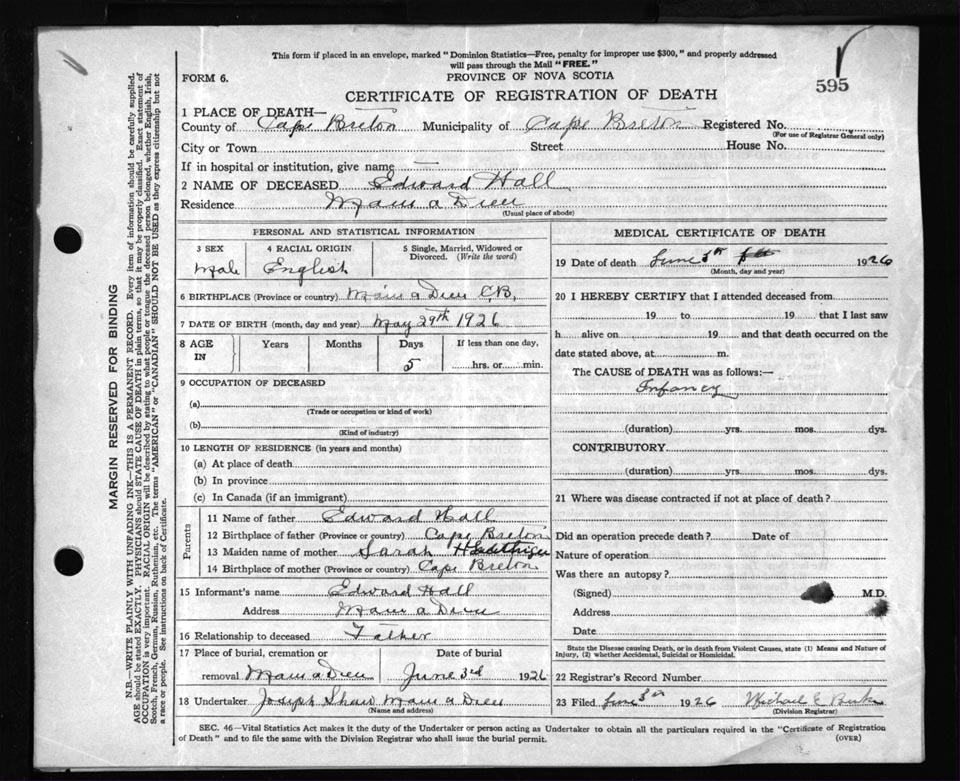 This form if placed in an envelope, marked "Dominion Statistics—Free, penalty for improper use $300," and properly addressed
will pass through the Mail "FREE."
FORM 6.
PROVINCE OF NOVA SCOTIA
595
CERTIFICATE OF REGISTRATION OF DEATH
1 PLACE OF DEATH—
County of Cape Breton Municipality of Cape Breton Registered No.
(For use of Registrar General only)
City or Town Street House No.
If in hospital or institution, give name —
2 NAME OF DECEASED Edward Hall
Residence Main a Dieu
(Usual place of abode)
PERSONAL AND STATISTICAL INFORMATION
3 SEX 4 RACIAL ORIGIN 5 Single, Married, Widowed or
Divorced. (Write the word)
Male English
6 BIRTHPLACE (Province or country) Main a Dieu C.B.
7 DATE OF BIRTH (month, day and year) May 29th 1926
8 AGE IN Years Months Days If less than one day,
5 hrs. or min.
9 OCCUPATION OF DECEASED
(a)
(Trade or occupation or kind of work)
(b)
(Kind of industry)
10 LENGTH OF RESIDENCE (in years and months)
(a) At place of death
(b) In province
(c) In Canada (if an immigrant)
Parents
11 Name of father Edward Hall
12 Birthplace of father (Province or country) Cape Breton
13 Maiden name of mother Sarah
14 Birthplace of mother (Province or country) Cape Breton
15 Informant's name Edward Hall
Address Main a Dieu
16 Relationship to deceased Father
17 Place of burial, cremation or Date of burial
removal Main a Dieu June 3rd 1926
18 Undertaker Joseph Shaw Main a Dieu
(Name and address)
MEDICAL CERTIFICATE OF DEATH
19 Date of death June 1926
(Month, day and year)
20 I HEREBY CERTIFY that I attended deceased from
19 to 19 that I last saw
h alive on 19 and that death occurred on the
date stated above, at m.
The CAUSE of DEATH was as follows:—
Infancy
(duration) yrs. mos. dys.
CONTRIBUTORY
(duration) yrs. mos. dys.
21 Where was disease contracted if not at place of death?
Did an operation precede death? Date of
Nature of operation
Was there an autopsy?
(Signed) M.D.
Address
Date
State the Disease causing Death, or in death from Violent Causes, state (1) Means and Nature of
Injury, (2) whether Accidental, Suicidal or Homicidal.
22 Registrar's Record Number
23 Filed June 1926 Michael E
(Division Registrar)
SEC. 46—Vital Statistics Act makes it the duty of the Undertaker or person acting as Undertaker to obtain all the particulars required in the "Certificate of Registration
of Death" and to file the same with the Division Registrar who shall issue the burial permit. (OVER)
MARGIN RESERVED FOR BINDING
N.B.—WRITE PLAINLY WITH UNFADING INK—THIS IS A PERMANENT RECORD. Every item of information should be carefully supplied.
AGE should be stated EXACTLY. PHYSICIANS should STATE CAUSE OF DEATH in plain terms, so that it may be properly classified. Exact statement of
OCCUPATION is very important. RACIAL ORIGIN will be described by stating to what people or tongue the deceased person belonged, whether English, Irish,
Scotch, French, German, Russian, Ruthenian, etc. The terms "AMERICAN" or "CANADIAN" SHOULD NOT BE USED as they express citizenship but not
a race or people. See instructions on back of Certificate.